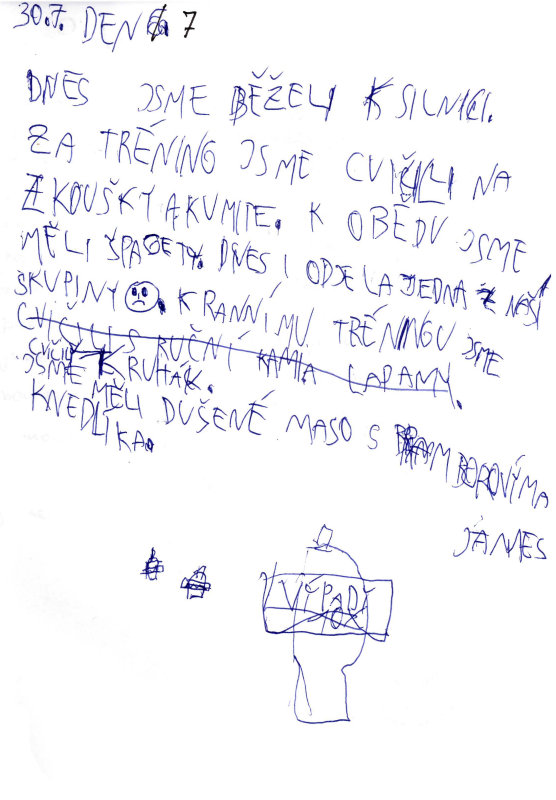 30.7. DEN 7
DNES JSME BĚŽELI K SILNICI.
ZA TRÉNING JSME CVIČILI NA
ZKOUŠKY A KUMITE. K OBĚDU JSME
MĚLI ŠPAGETY. DNES I ODJELA JEDNA Z NAŠÍ
SKUPINY. K RANNÍMU TRÉNINGU JSME
CVIČILI S RUČNÍ LAPAMY.
CVIČILI
JSME KRUHÁK.
MĚLI DUŠENÉ MASO S BRAMBOROVÝMA
KNEDLIKA.
JAMES
VÝPADY